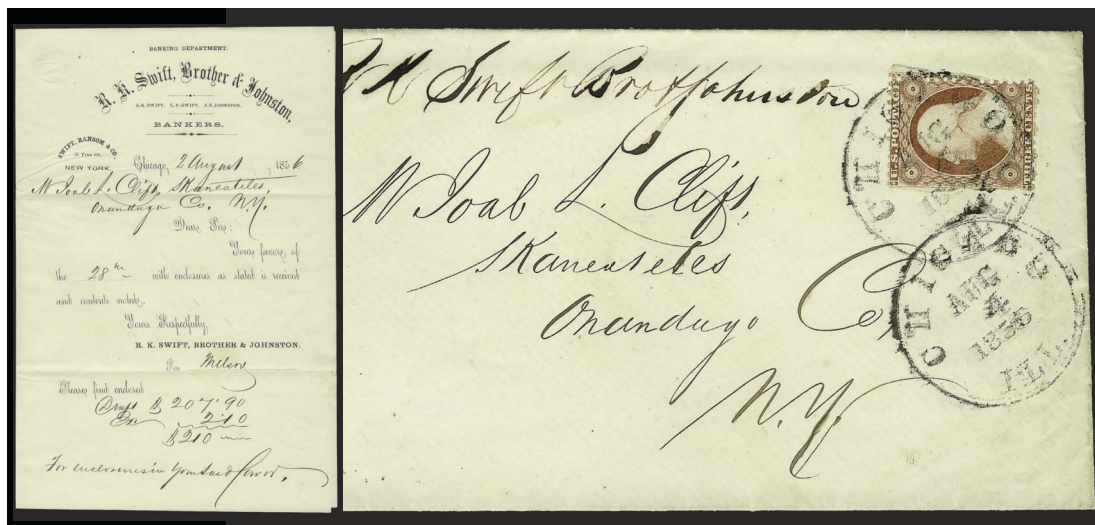 BANKING DEPARTMENT.
R. K. Swift, Brother & Johnston,
R.K. SWIFT. L.P. SWIFT. J.S. JOHNSTON.
BANKERS.
SWIFT, RANSOM & CO.
NEW YORK
Chicago, 2 August, 1856
Mr Joab L. Clift, Skaneateles,
Onandaga Co. N.Y.
Dear Sir:
Yours favor, of
the 28th with enclosures as stated is received
and contents noted.
Yours Respectfully,
R. K. SWIFT, BROTHER & JOHNSTON.
Per
Please find enclosed
Draft $ 207.90
Ex 2.10
$210
For enclosures in your said favor.
R K Swift Bro & Johnston
Mr Joab L. Clift,
Skaneateles
Onandago Co,
N.Y.
U.S. POSTAGE
THREE CENTS
CHICAGO
AUG
4
1856
ILL
CHICAGO
AUG
4
1856
ILL